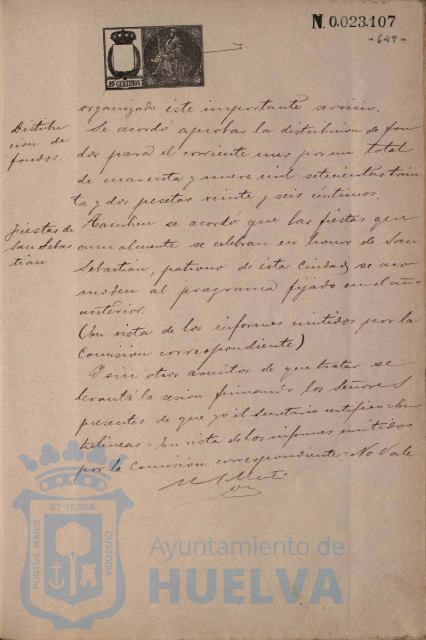 N.0.023.107
-648-
10 CENTIMOS
organizado éste importante servicio.
Distribu
cion de
fondos.
Se acordó aprobar la distribucion de fon
dos para el corriente mes por un total
de cuarenta y nueve mil setecientas trein
ta y dos pesetas veinte y seis céntimos.
Fiestas de
San Sebas
tian
Tambien se acordó que las fiestas que
anualmente se celebran en honor de San
Sebastian, patrono de ésta Ciudad, se aco
moden al programa fijado en el año
anterior.
(En vista de los informes emitidos por la
Comision correspondiente)
Y sin otros asuntos de que tratar se
levantó la sesion firmando los señores
presentes de que yo el Secretario certifico = En
trelineas = En vista de los informes emitidos
por la Comision correspondiente = No Vale
PORTUS MARIS ET TERRÆ CUSTODIA
Ayuntamiento de
HUELVA